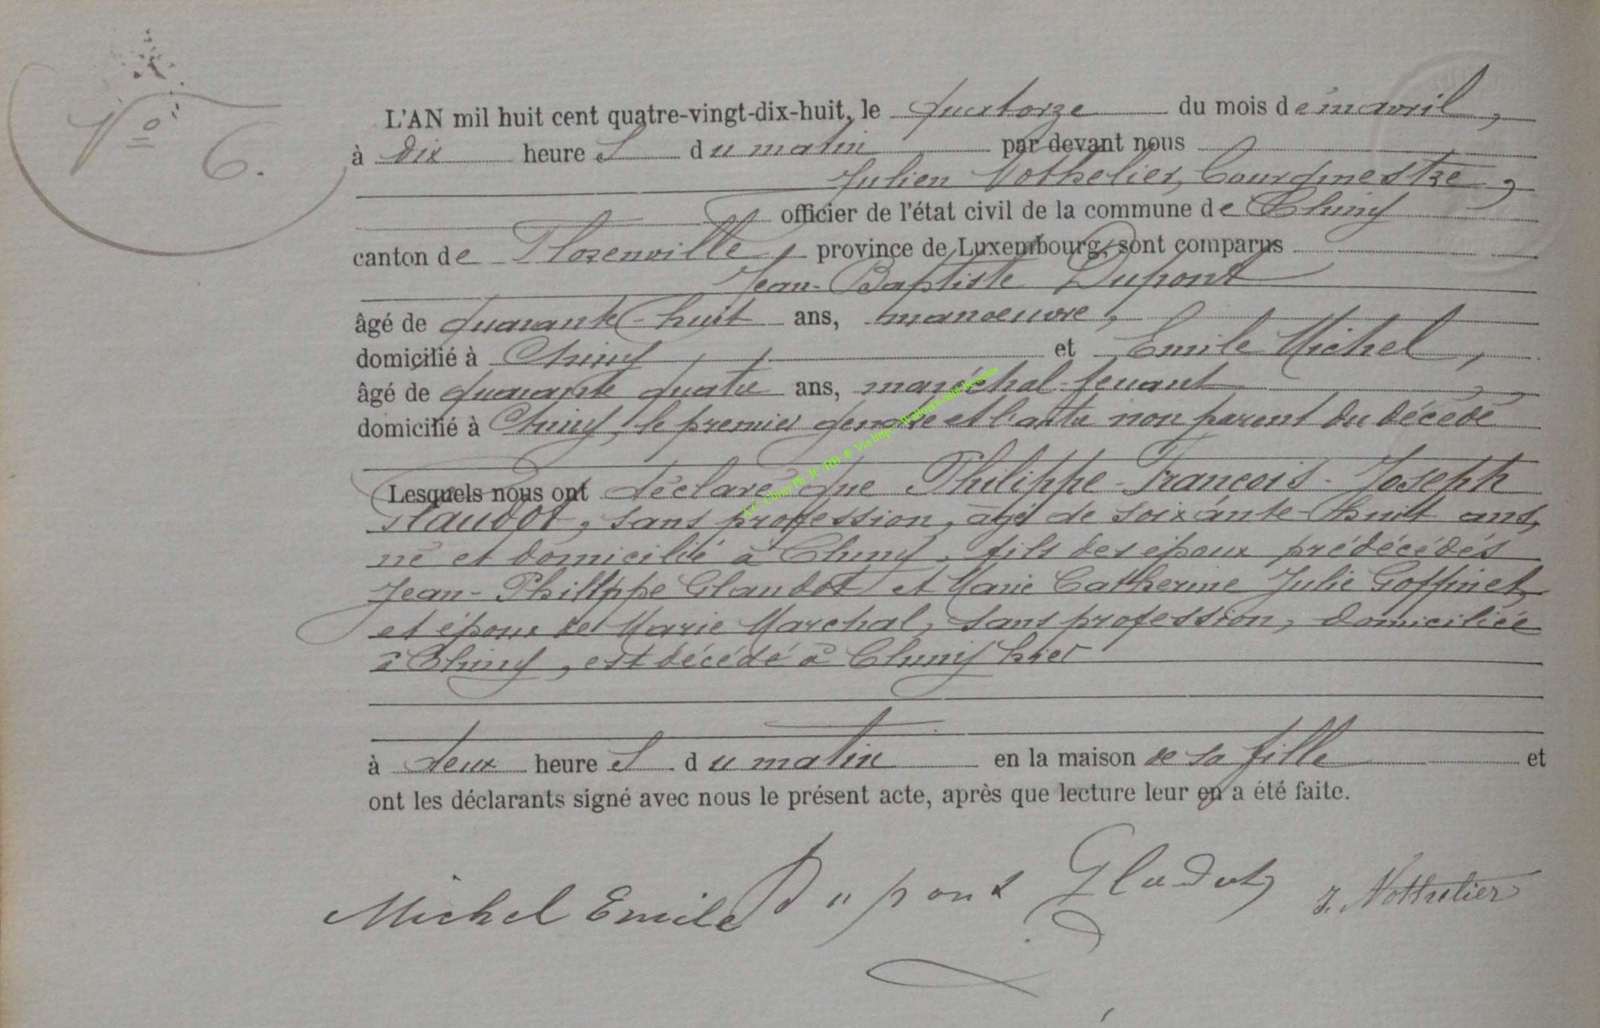 N° 6.
L'AN mil huit cent quatre-vingt-dix-huit, le quatorze du mois d'avril,
à dix heures du matin par devant nous
Julien Nothelier, bourgmestre,
officier de l'état civil de la commune de Chiny
canton de Florenville, province de Luxembourg, sont comparus
Jean-Baptiste Dupont
âgé de quarante-huit ans, manœuvre,
domicilié à Chiny, et Emile Michel,
âgé de quarante quatre ans, maréchal-ferrant,
domicilié à Chiny, le premier gendre et l'autre non parent du décédé
Lesquels nous ont déclaré que Philippe-François-Joseph
Glaudot, sans profession, âgé de soixante-huit ans,
né et domicilié à Chiny, fils des époux prédécédés
Jean-Philippe Glaudot et Marie Catherine Julie Goffinet,
et époux de Marie Marchal, sans profession, domiciliée
à Chiny, est décédé à Chiny hier
à deux heures du matin en la maison de sa fille et
ont les déclarants signé avec nous le présent acte, après que lecture leur en a été faite.
Michel Emile Dupont Gludot J. Nothelier